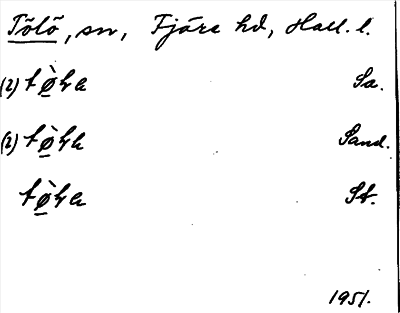 Tölö, sn, Fjäre hd, Hall. l.
(2) tø̀ła Sa.
(2) tø̀ła Sand.
tø̀ła St.
1951.